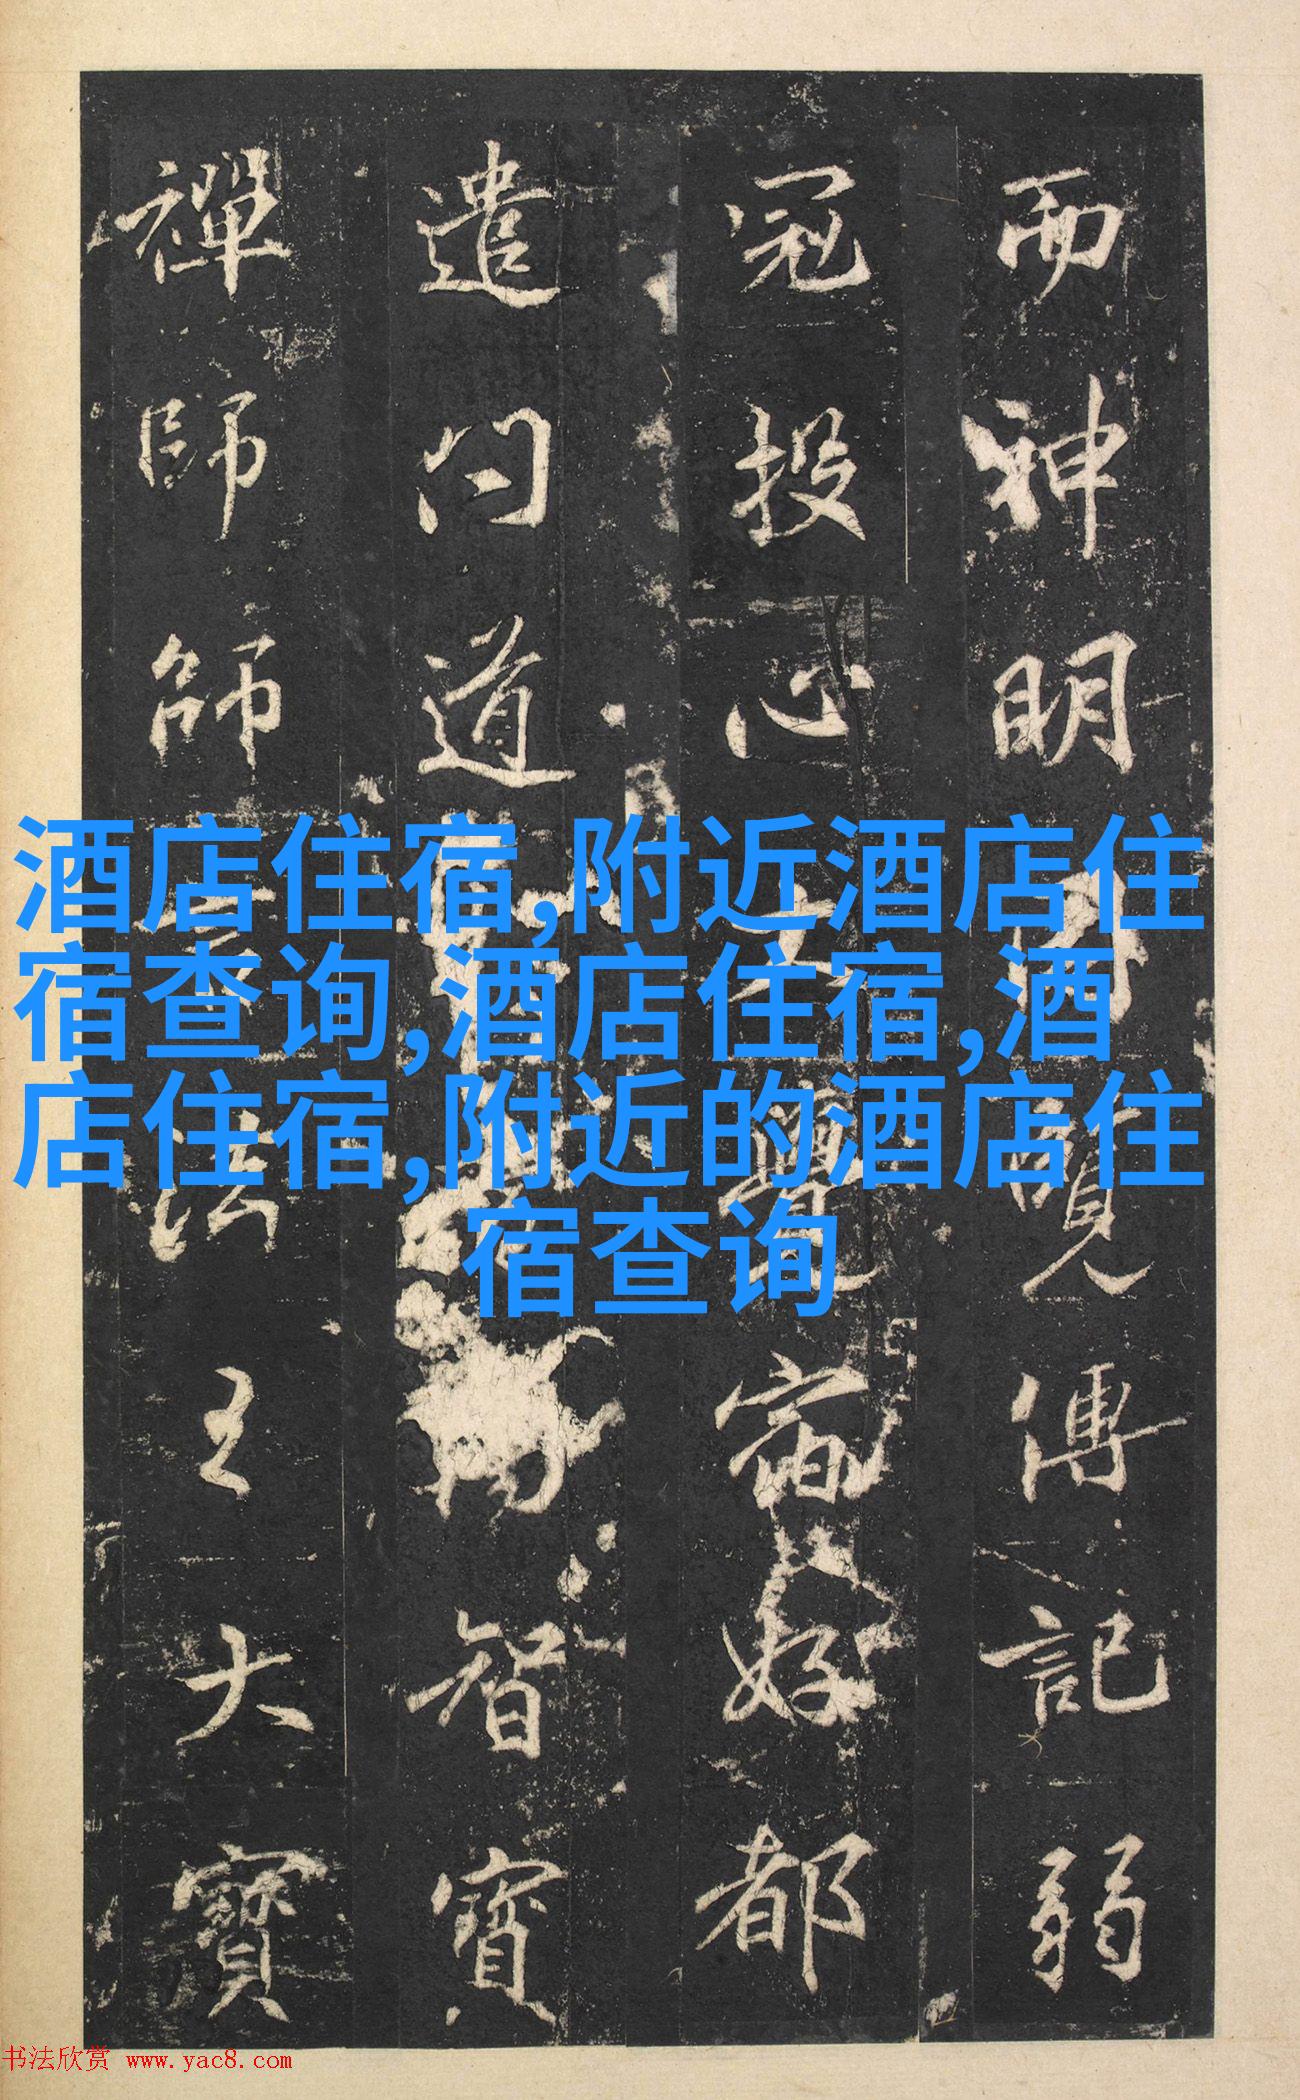 而神明傳記弱
冠投心覺宿好都
遣問道智寶
禪師師言法王大寶
酒店住宿,附近酒店住
宿查询,酒店住宿,酒
店住宿,附近的酒店住
宿查询
书法欣赏 www.yac8.com